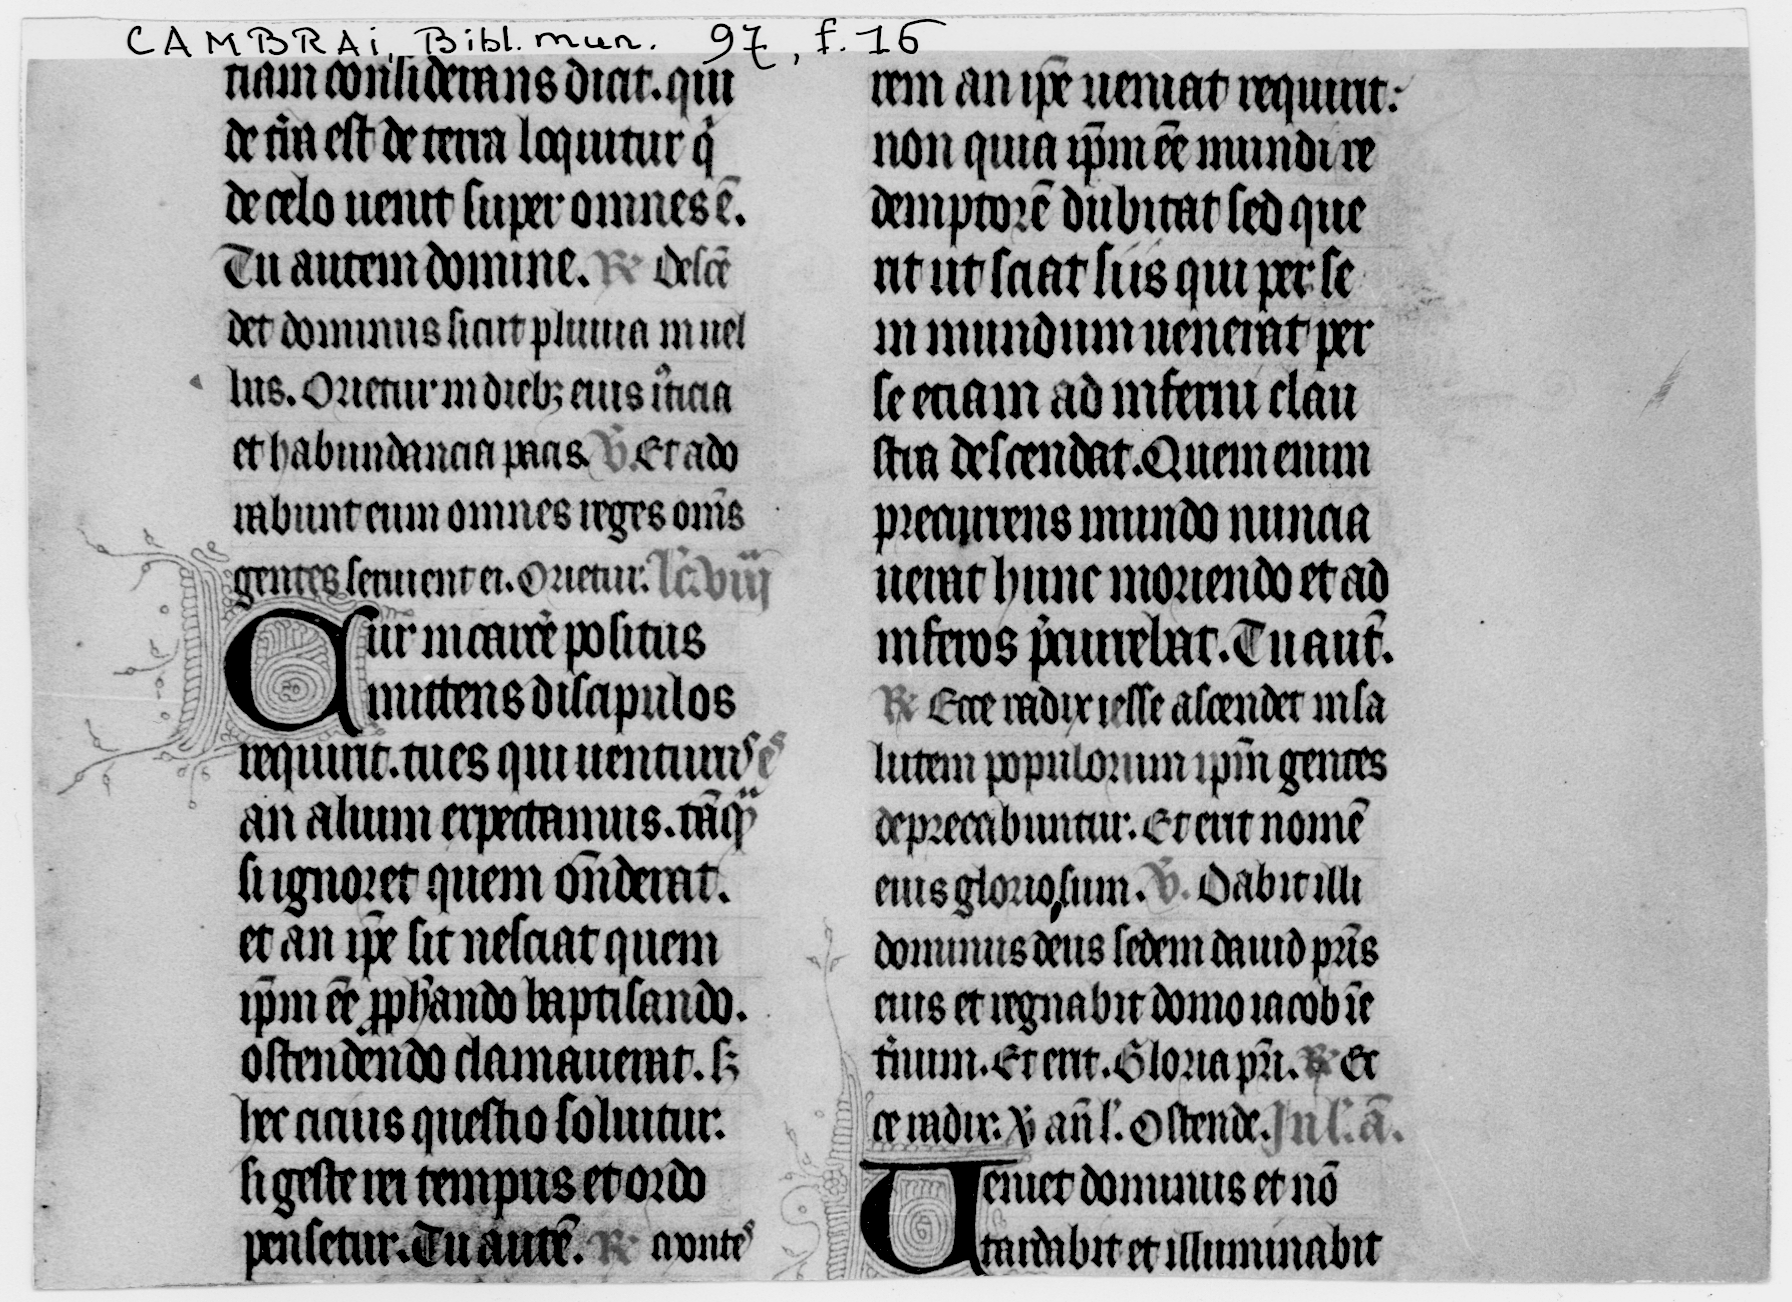 CAMBRAi, Bibl. mun. 97, f. 16
tiam considerans dicit. qui
de t̄ra est de terra loquitur q̇
de celo uenit super omnes ē.
Tu autem domine. R̸ Descē
det dominus sicut pluuia in uel
lus. Orietur in dieb; eius iᵒticia
et habundancia pacis. V̸. Et ado
rabunt eum omnes reges om̄s
gentes seruient ei. Orietur. lc̄. viij
Cur in carcē positus
mittens discipulos
requirit. tu es qui uenturꝰ es
an alium expectamus. tāqᷓ
si ignoret quem on̄derat.
et an ip̄e sit nesciat quem
ip̄m ēē ꝓph̄ando baptisando.
ostendendo clamauerat. sꝫ
hec cicius questio soluitur.
si geste rei tempus et ordo
pensetur. Tu autē. R̸ a ponte
rem an ip̄e ueniat requirit.
non quia ip̄m ēē mundi re
demptorē dubitat sed que
rit ut sciat si is qui per se
in mundum uenerat per
se etiam ad inferni clau
stra descendat. Quem enim
precurrens mundo nuncia
uerat hunc moriendo et ad
inferos p̄currebat. Tu aut̄.
R̸ Ecce radix iesse ascendet in sa
lutem populorum ip̄m gentes
deprecabuntur. Et erit nomē
eius gloriosum. V̸. Dabit illi
dominus deus sedem dauid pr̄is
eius et regnabit domo iacob ī e
t̄num. Et erit. Gloria pr̄i. R̸ Ec
ce radix. V̸ an̄ l'. Ostende. In l'. ā.
Ueniet dominus et nō
tardabit et illuminabit